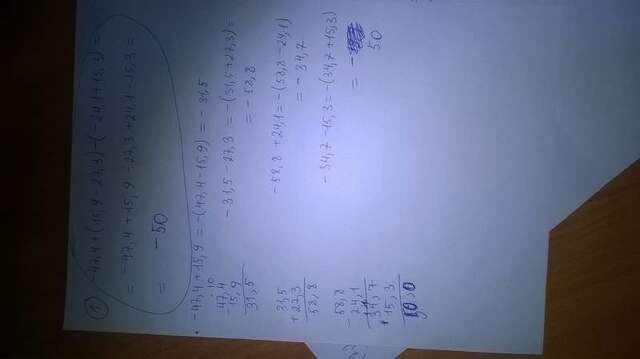 ① -47,4+(15,9-27,3)-(-24,1+15,3)=
= -47,4+15,9-27,3+24,1-15,3=
= -50
-47,4+15,9=-(47,4-15,9)=-31,5
-31,5-27,3=-(31,5+27,3)=
=-58,8
-58,8+24,1=-(58,8-24,1)
=-34,7
-34,7-15,3=-(34,7+15,3)
= -
50
. 10
47,4
-15,9
31,5
31,5
+27,3
58,8
58,8
-24,1
34,7
+15,3
50,0